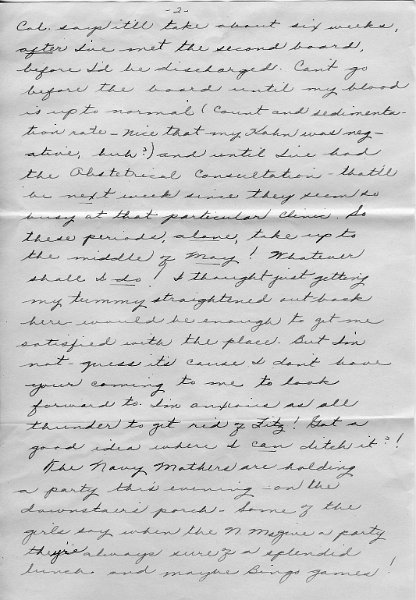 -2-
Col. says it'll take about six weeks,
after I've met the second board,
before I'd be discharged. Can't go
before the board until my blood
is up to normal (count and sedimenta-
tion rate - nice that my Kahn was neg-
ative, huh?) and until I've had
the Obstetrical Consultation - that'll
be next week since they seem so
busy at that particular clinic. So
these periods, alone, take up to
the middle of May! Whatever
shall I do! I thought just getting
my tummy straightened out back
here would be enough to get me
satisfied with the place. But I'm
not - guess its cause I don't have
your coming to me to look
forward to. I'm anxious as all
thunder to get rid of Fitz! Got a
good idea where I can ditch it?!
The Navy Mothers are holding
a party this evening - on the
downstairs porch - Some of the
girls say when the N Ms give a party
they're always sure of a splended
lunch - and maybe Bingo games!